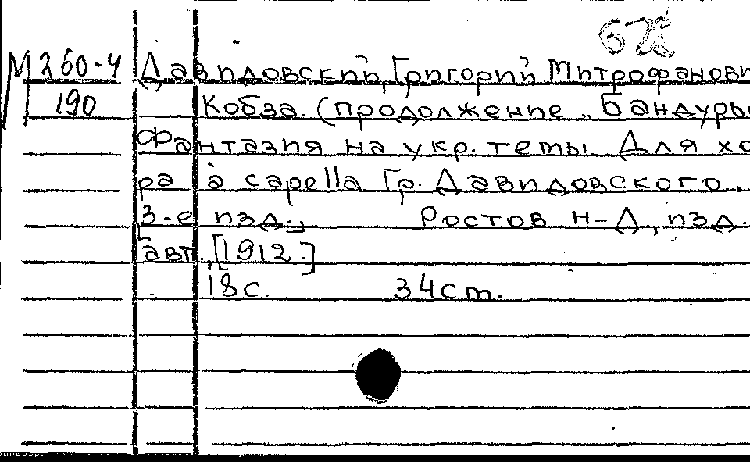 М 360-4 Давидовский, Григорий Митрофанови
190 Кобза. (продолжение „Бандуры
Фантазия на укр. темы. Для хо
ра a capella Гр. Давидовского.
3-е изд., Ростов н-Д, изд.
авт., [1912.]
18с. 34см.